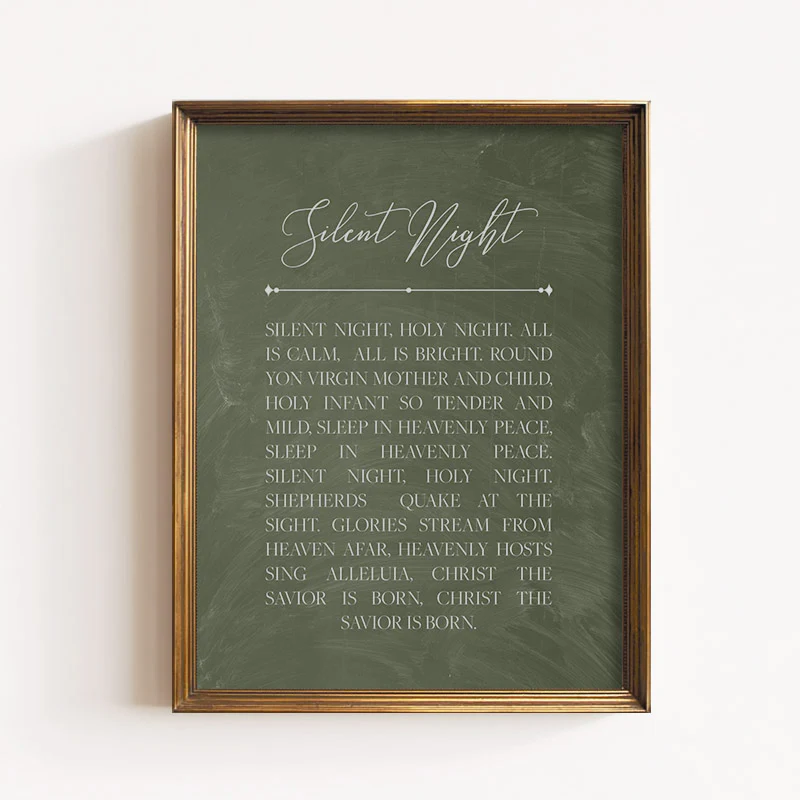 Silent Night
SILENT NIGHT, HOLY NIGHT. ALL
IS CALM, ALL IS BRIGHT. ROUND
YON VIRGIN MOTHER AND CHILD,
HOLY INFANT SO TENDER AND
MILD, SLEEP IN HEAVENLY PEACE,
SLEEP IN HEAVENLY PEACE.
SILENT NIGHT, HOLY NIGHT.
SHEPHERDS QUAKE AT THE
SIGHT. GLORIES STREAM FROM
HEAVEN AFAR, HEAVENLY HOSTS
SING ALLELUIA, CHRIST THE
SAVIOR IS BORN, CHRIST THE
SAVIOR IS BORN.